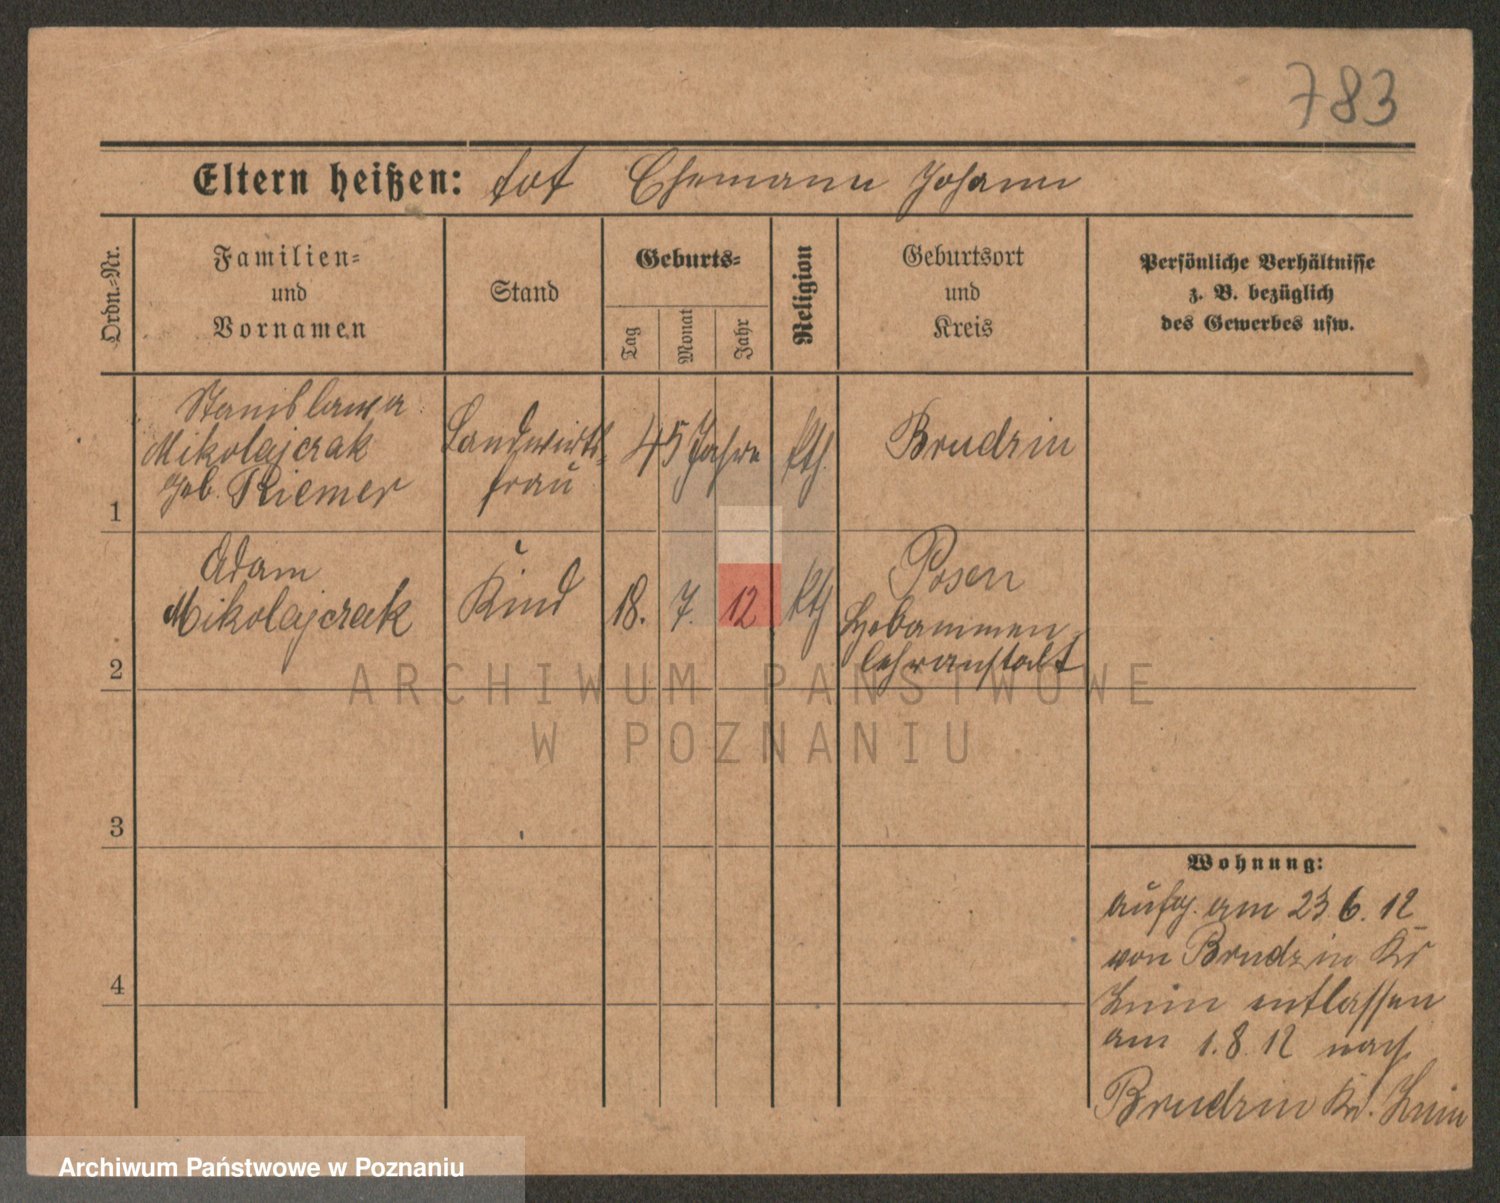 783
Eltern heißen: tot Ehemann Johann
Ordn.-Nr.
Familien-
und
Vornamen
Stand
Geburts-
Tag
Monat
Jahr
Religion
Geburtsort
und
Kreis
Persönliche Verhältnisse
z. B. bezüglich
des Gewerbes usw.
1
Stanislawa
Mikolajczak
geb. Riemer
Landwirts-
frau
45 Jahre
kth.
Brudzin
2
Adam
Mikolajczak
Kind
18. 7. 12
kth
Posen
Hebammen
lehranstalt
3
4
Wohnung:
aufg. am 23 6. 12
von Brudzin Kr
Znin entlassen
am 1. 8. 12 nach
Brudzin Kr. Znin
ARCHIWUM PAŃSTWOWE
W POZNANIU
Archiwum Państwowe w Poznaniu